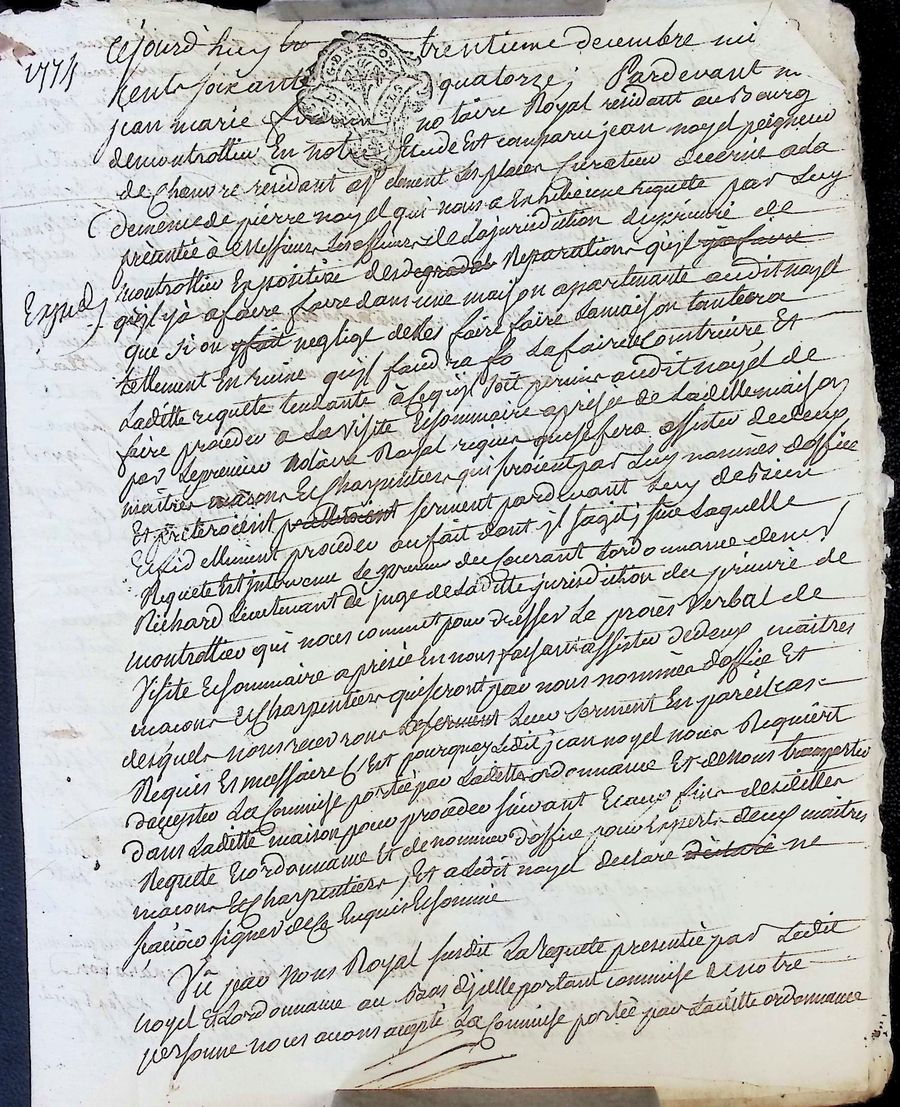 1774
Cejourd'huy trentieme decembre mil
sept cents soixante quatorze, Pardevant
jean marie notaire Royal residant au Bourg
demontrottier En notre Etude Est comparu jean noyel peigneur
de Chanvre residant a st clement Les places Curateur decerné a la
demence de pierre noyel qui nous a Exhibé une requete par Luy
presentée à Messieurs Les officiers de La jurisdiction du prieuré de
montrottier Expositive des degrades Reparations qu'il ya faire
qu'il y a a faire faire dans une maison appartenante audit noyel
Expédié
que si on fait neglige de Les faire faire La maison tombera
tellement En ruine qu'il faudra La faire Construire Et
Laditte requete tendante à ce qu'il soit permis audit noyel de
faire proceder a La Visite Et Sommaire aprise de Laditte maison
par Le premier Notaire Royal requis qui se fera assister de deux
maîtres masons Et Charpentiers qui seroient par Luy nommés d'office
Et preteroient serment pardevant Luy de bien
Et fidellement proceder au fait dont il s'agit; sur Laquelle
Requete Est intervenue Le du Courant Lordonnance de mr
Richard Lieutenant de juge de Laditte jurisdiction du prieuré de
montrottier qui nous commet pour dresser Le procès Verbal de
Visite Et Sommaire aprise En nous faisant assister de deux maîtres
macons Et Charpentiers qui seront par nous nommés d'office Et
desquels nous recevrons Le serment Leur serment En pareil cas
Requis Et nessaire C'Est pourquoy Ledit jean noyel nous Requiert
d'accepter La Commise portée par Laditte ordonnance Et de nous transporter
dans Laditte maison pour proceder suivant Et aux fins desdittes
Requete Et ordonnance Et de nommer d'office pour Experts deux maîtres
macons Et Charpentiers, Et a Ledit noyel declare declaré ne
savoir signer de ce Enquis Et Sommé
Vû par nous Royal susdit La requete presentée par Ledit
noyel Et Lordonnance au bas d'jcelle portant commise de notre
personne nous avons accepté La Commise portée par Laditte ordonnance